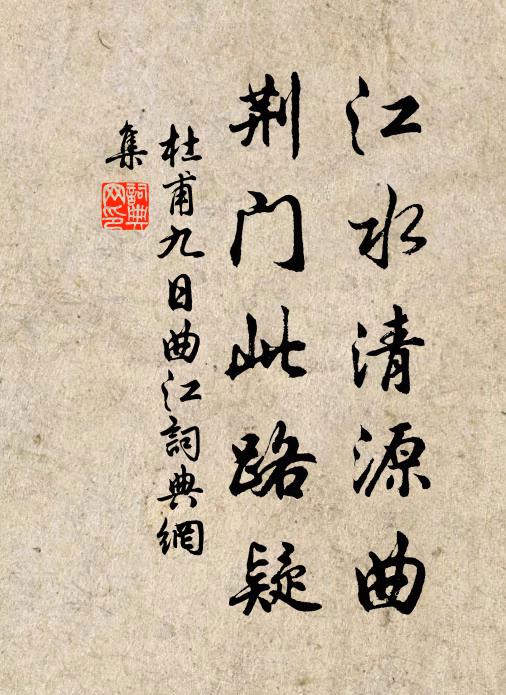 江水清源曲
荆门此路疑
杜甫九日曲江詞典網
集
詞典網印